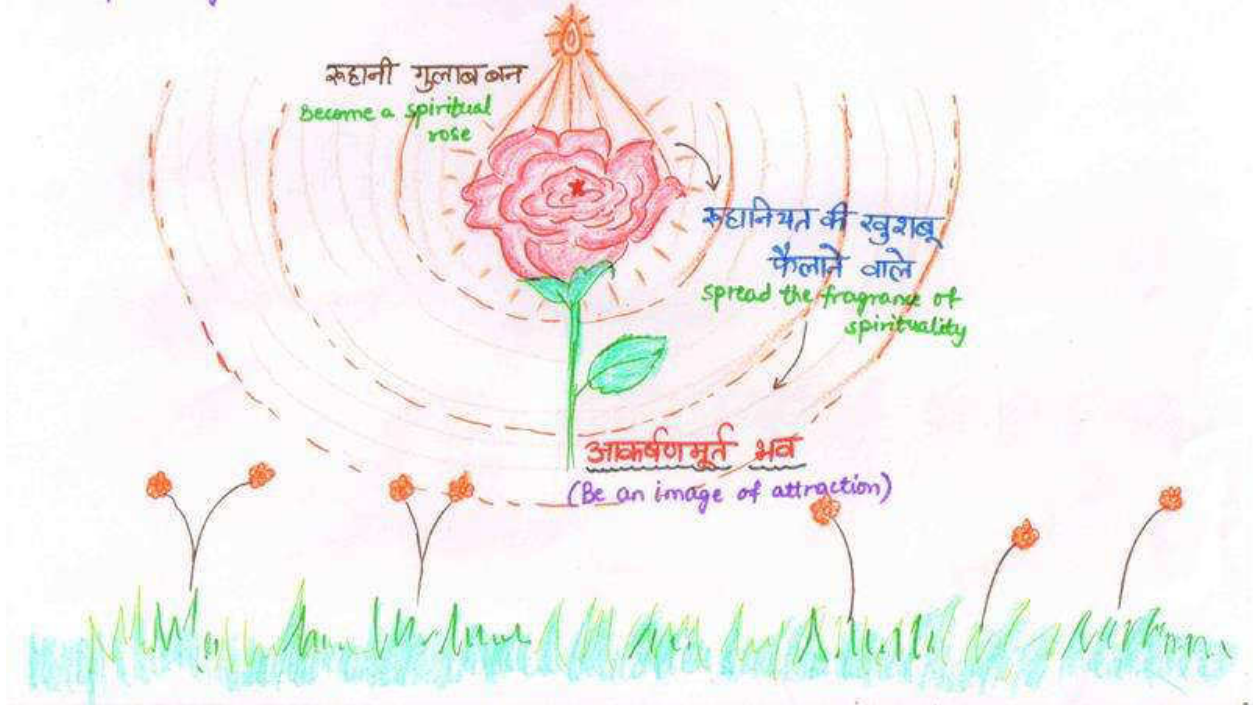 रूहानी गुलाब बन
Become a spiritual
rose
रूहानियत की खुशबू
फैलाने वाले
spread the fragrance of
spirituality
आकर्षणमूर्त भव
(Be an image of attraction)